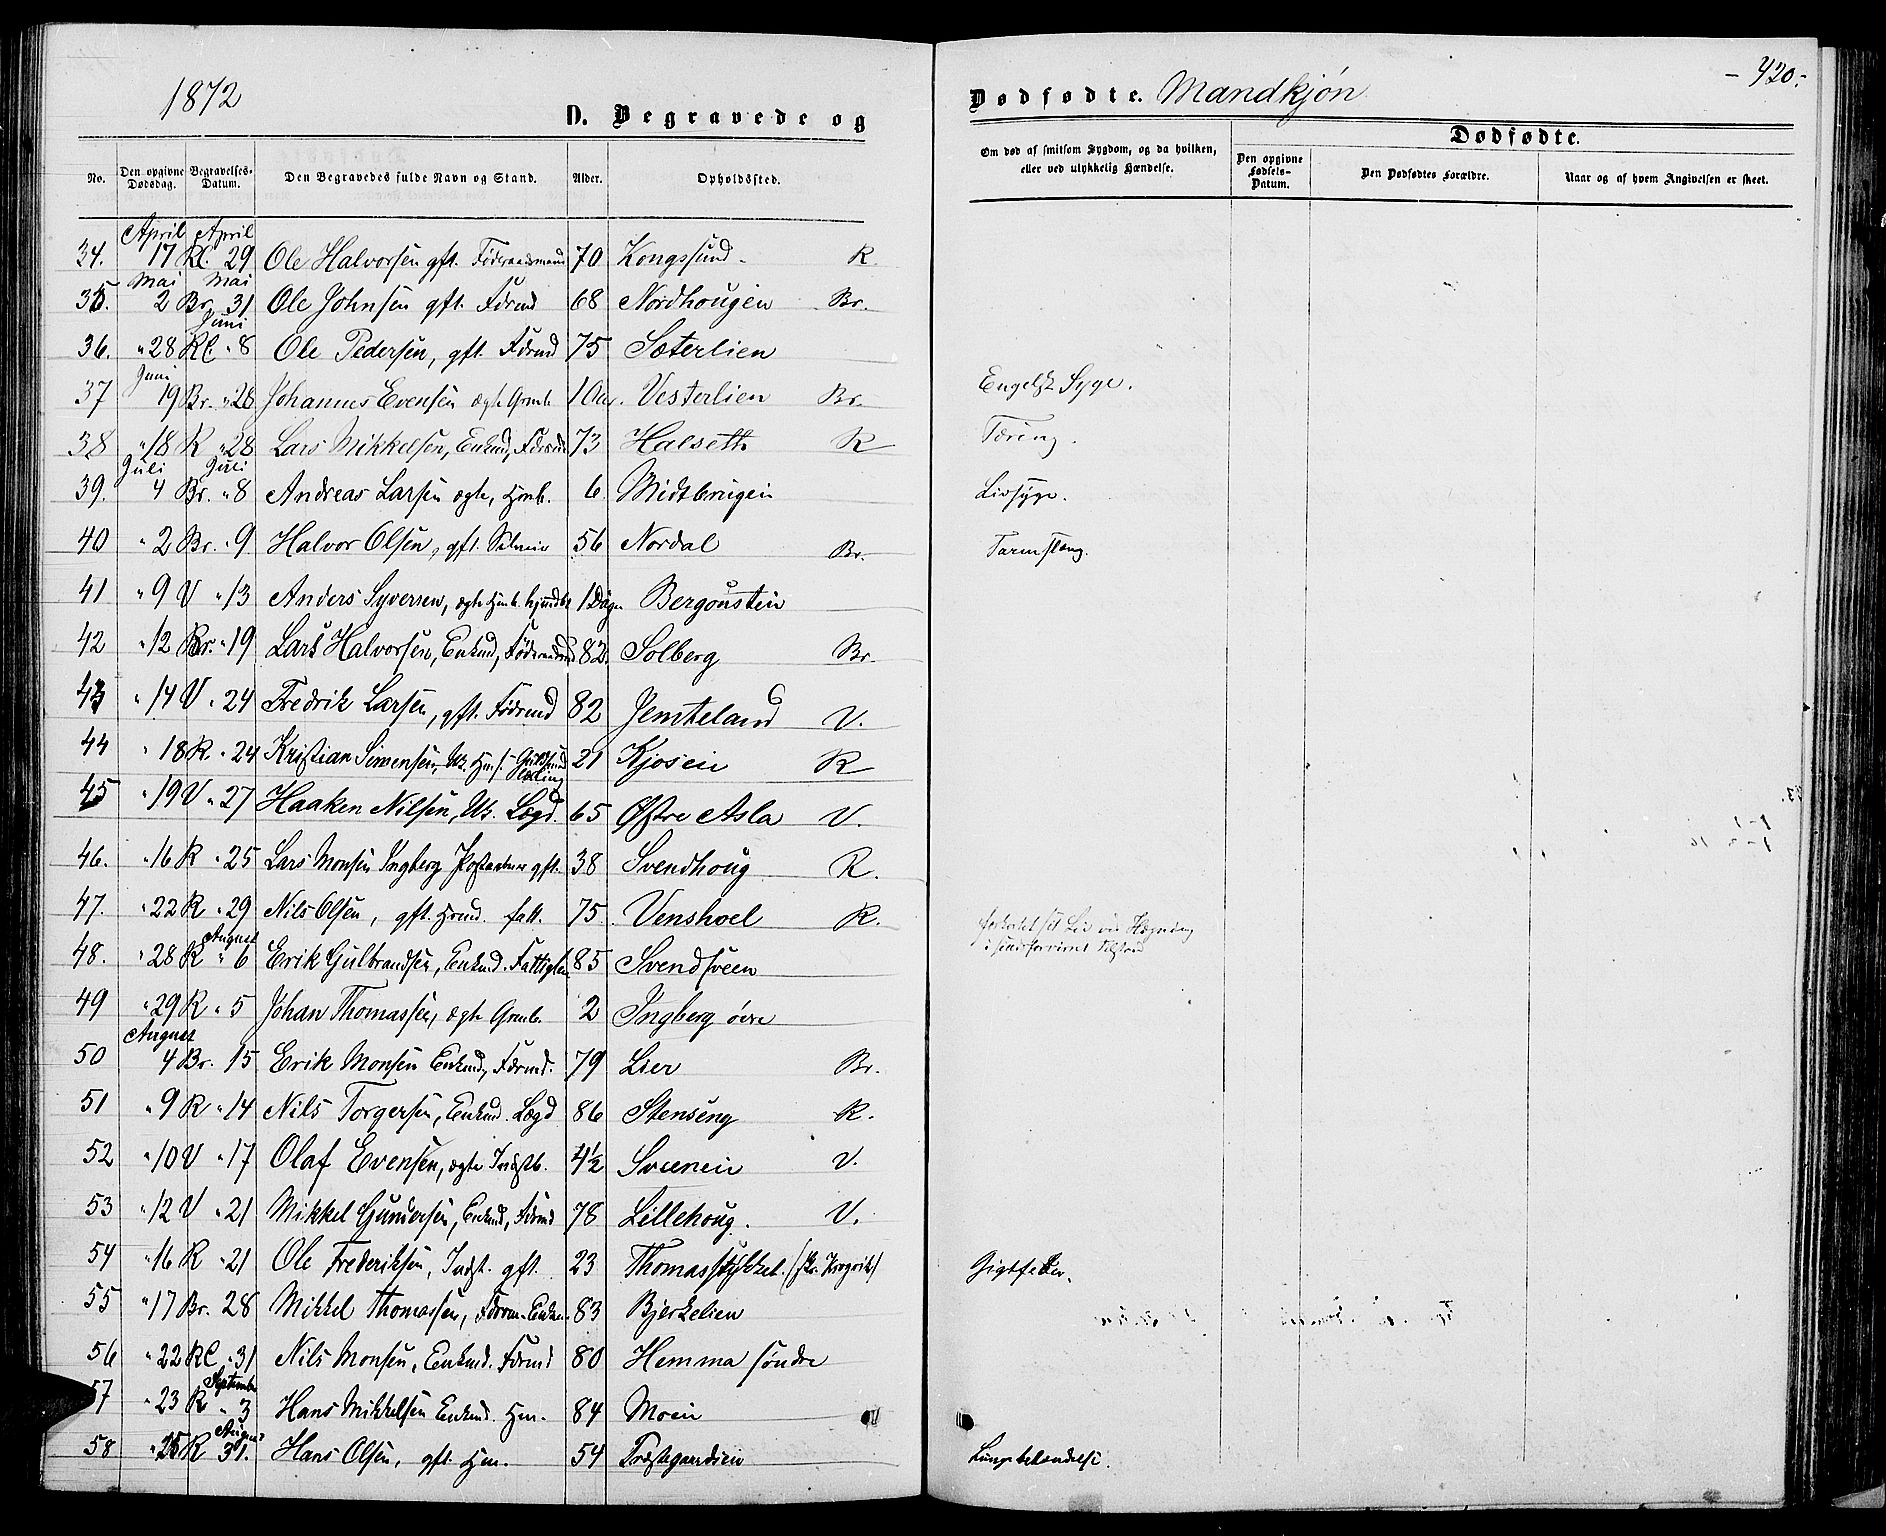 1872
D. Begravede og
Dødfødte. Mandkjøn
- 420 -
No. | Den opgivne Dødsdag. | Begravelses-Datum. | Den Begravedes fulde Navn og Stand. | Alder. | Opholdssted. | Om død af smitsom Sygdom, og da hvilken, eller ved ulykkelig Hændelse. | Dødfødte. Den opgivne Fødsels-Datum. | Den Dødfødtes Forældre. | Naar og af hvem Angivelsen er skeet.
34. April 17 Rl. April 29 Ole Halvorsen gft. Føderaadsmand 70 Kongssund R
35 Mai 2 Br. Mai 31 Ole Johnsen gft. Fdrmd 68 Nordhougen Br.
36. " 28 Rl Juni " 8 Ole Pedersen, gft. Fdrmd 75 Sæterlien
37 Juni 19 Br. " 28 Johannes Evensen ægte Grmb. 1 Aar. Vesterlien Br. Engelsk Syge.
38 " 18 R " 28 Lars Mikkelsen, Enkmd, Fdrmd 73 Halseth R Tæring.
39. Juli 4 Br. Juli " 8 Andreas Larsen ægte, Hmb. 6. Midtbrugen Livsyge.
40 " 2 Br. " 9 Halvor Olsen, gft. Selveier 56 Nordal Br. Tarmslæng.
41 " 9 V " 13 Anders Syversen, ægte Hmb. hjmdbt 1 Døgn Bergoustein
42 " 12 Br. " 19 Lars Halvorsen, Enkmd, Føderaadsmd 82. Solberg Br.
43 " 14 V " 24 Fredrik Larsen, gft. Fdrmd 82 Jemteland V.
44 " 18 R. " 24 Kristian Simensen, Uk. Hms. 21 Kjosen R
45 " 19 V " 27 Haaken Nilsen, Uk. Lægd. 65 Østre Asla V.
46. " 16 R " 25 Lars Monsen Ingberg Postaabner gft. 38 Svendhoug R.
47. " 22 R " 29 Nils Olsen, gft. Hsmd. fatt. 75 Venshoel R. forkortet sit Liv ved Hængning i sindsforvirret Tilstand
48. " 28 R August " 6 Erik Gulbrandsen, Enkmd. Fattiglem 85 Svendsveen
49 " 29 R " 5 Johan Thomassen, ægte Grmb. 2 Ingberg øvre
50 August 4 Br. 15 Erik Monsen Enkmd, Fdrmd. 79 Lier Br.
51 " 9 R " 14 Nils Torgersen, Enkmd. Lægd 86 Stenseng R.
52 " 10 V " 17 Olaf Evensen, ægte Indstb. 4½ Sveneie V.
53 " 12 V " 21 Mikkel Gundersen, Enkmd, Fdrmd 78 Lillehoug. V.
54 " 16 R " 21 Ole Frederiksen, Indst. gft. 23 Thomasstykket. Gigtfeber.
55 " 17 Br. 28 Mikkel Thomassen, Fdrm. Enkm. 83 Bjerkelien
56 " 22 Rl " 31 Nils Monsen, Enkmd. Fdrmd 80 Hemma søndre
57 " 23 R September " 3 Hans Mikkelsen Enkmd. Hm. 84 Moen
58. " 25 R August 31. Hans Olsen, gft. Hm. 54 Lungebetændelse.